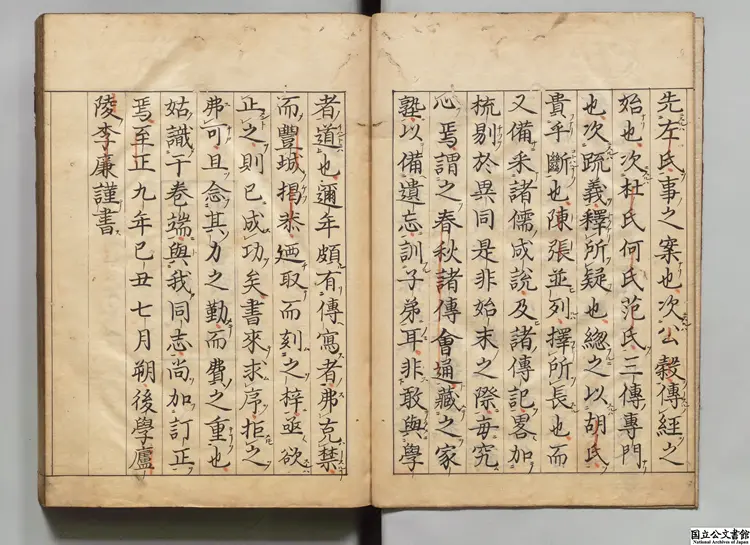 先左氏事之案也次公穀傳経之
始也次杜氏何氏范氏三傳專門
也次疏義釋所疑也緫之以胡氏
貴乎斷也陳張並列擇所長也而
又備采諸儒成說及諸傳記畧加
梳剔於異同是非始末之際毎究
心焉謂之春秋諸傳會通藏之家
塾以備遺忘訓子弟耳非敢與學
者道也邇年頗有傳寫者弗克禁
而豐城揭恭廼取而刻之梓亟欲
正之則已成功矣書來求序拒之
弗可且念其力之勤而費之重也
姑識于卷端與我同志尚加訂正
焉至正九年己丑七月朔後學廬
陵李廉謹書
国立公文書館
National Archives of Japan